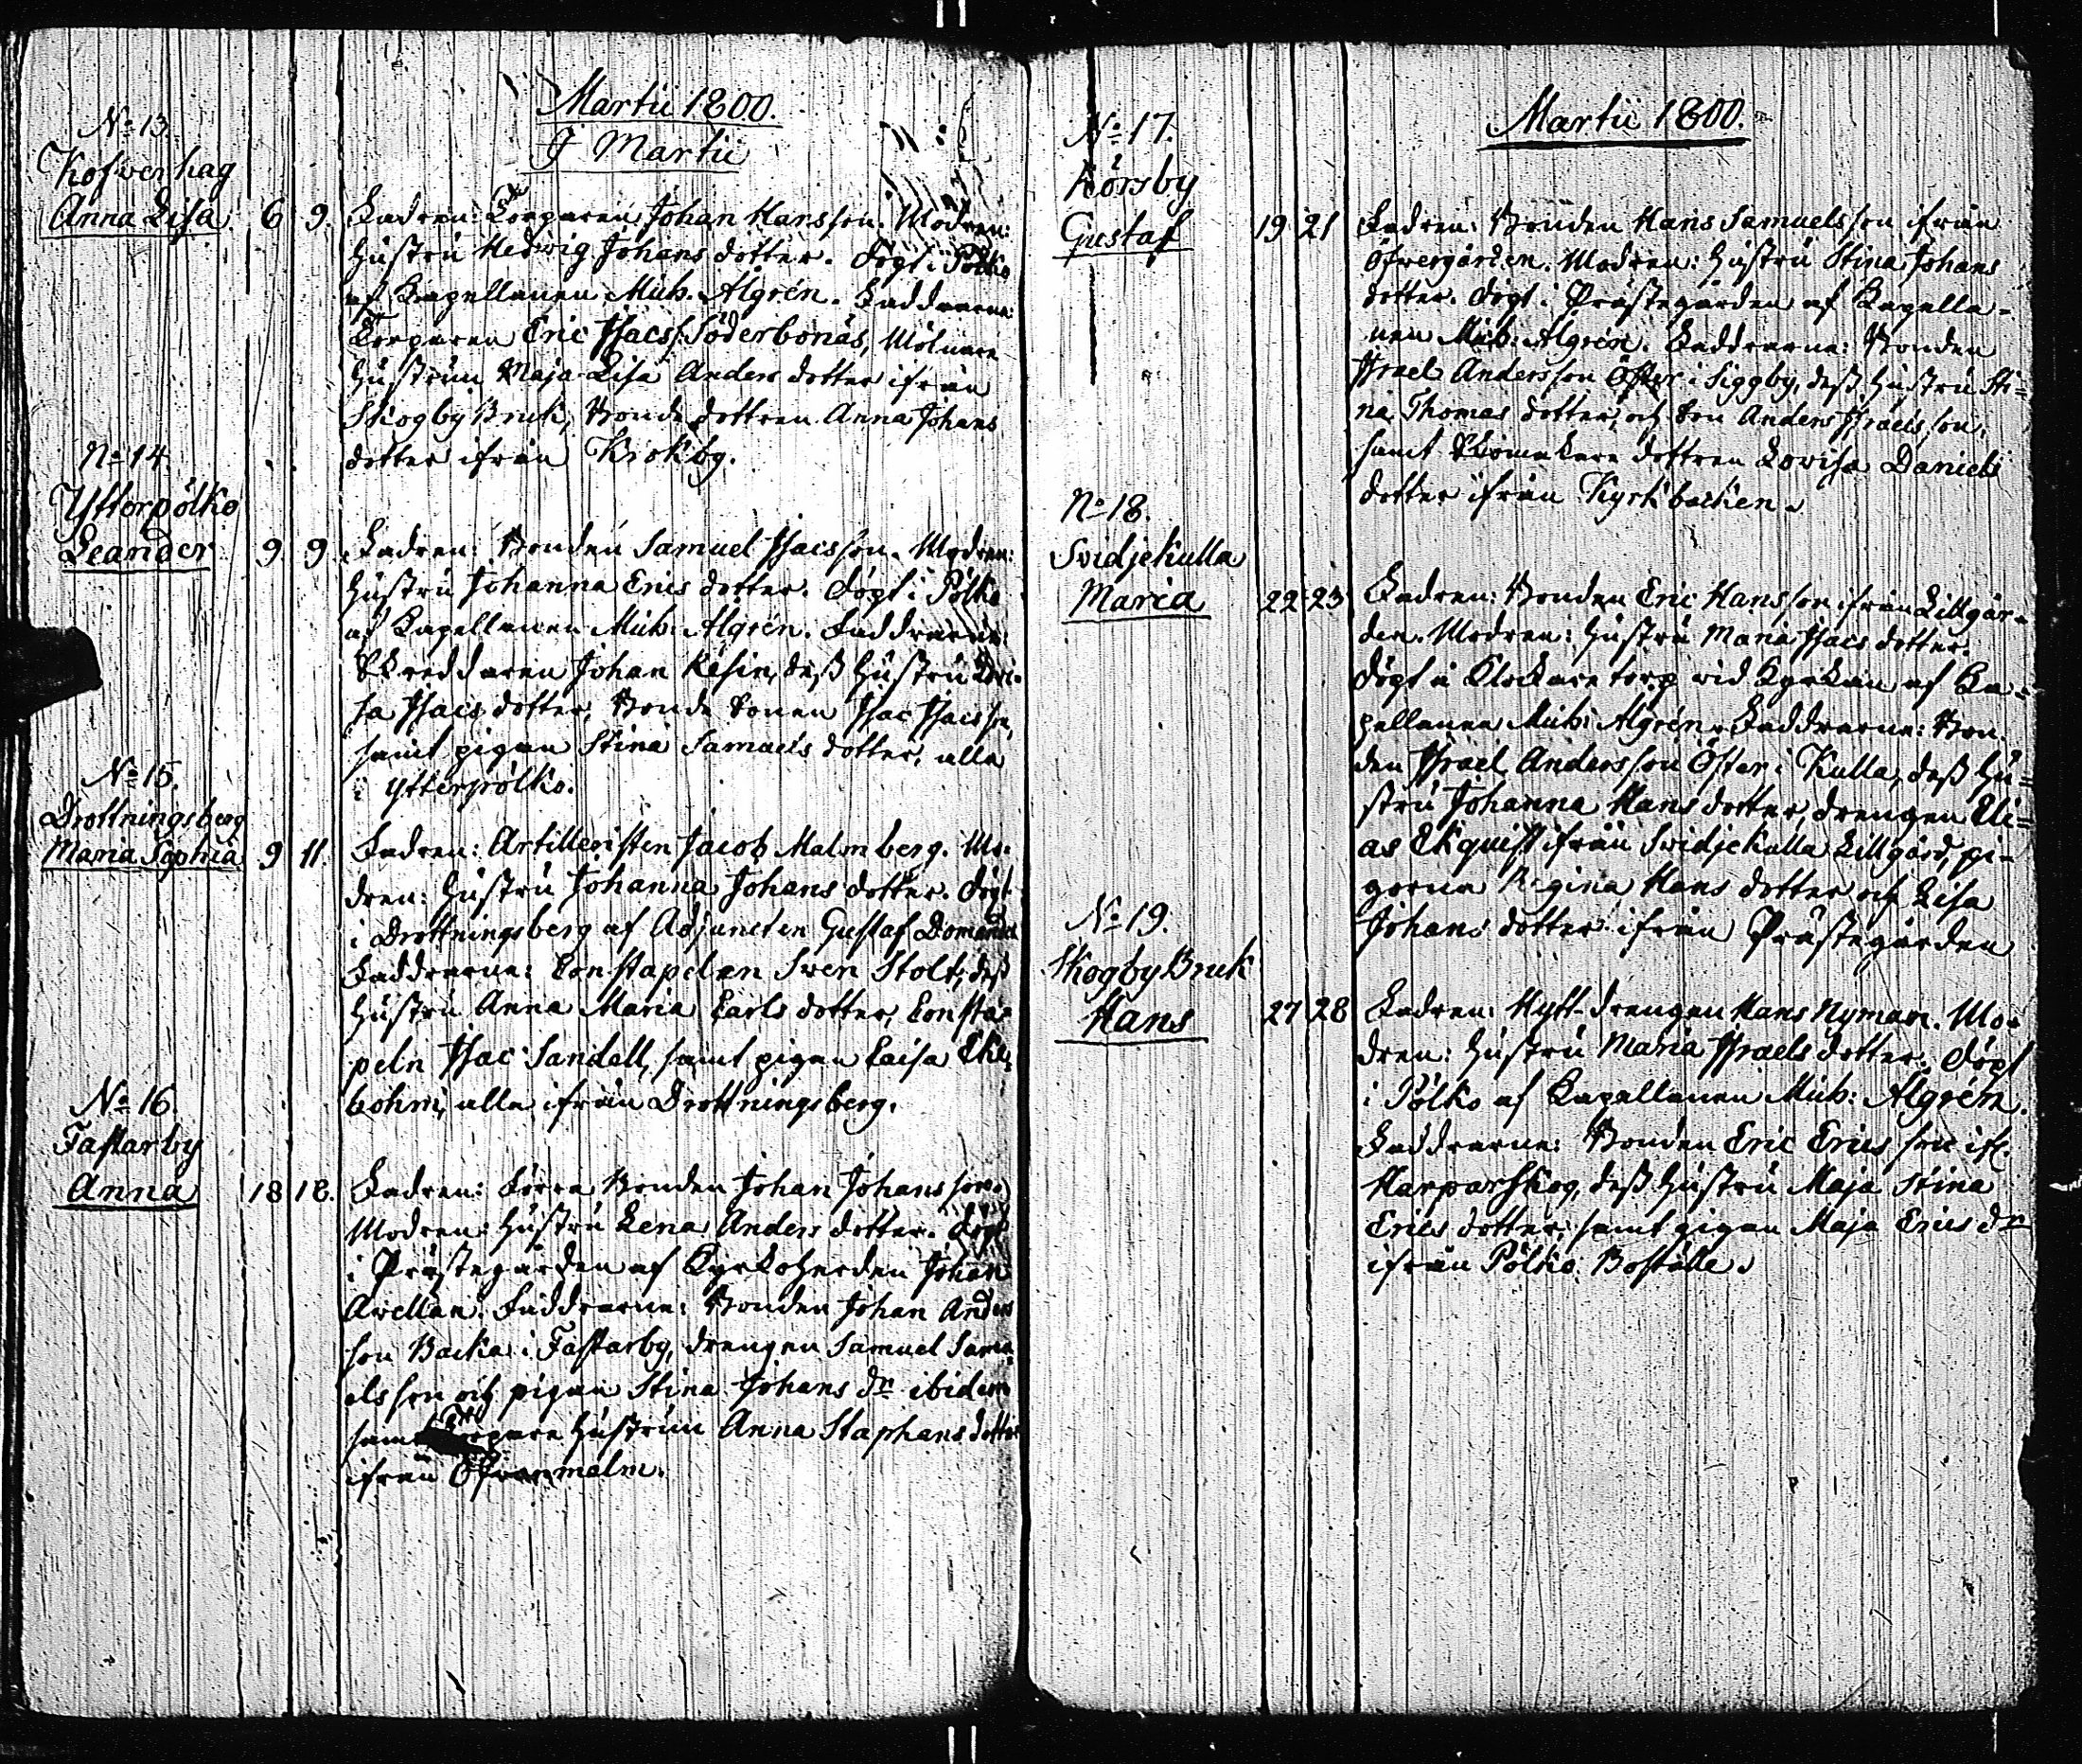 Martii 1800.
J Martii
No 13
Kofwerhag
Anna Lisa 6 9. Fadren: Torparen Johan Hansson. Modren:
hustru Hedwig Johans dotter. Döpt i Pölko
af Capellanen Mich. Algrén. Faddrarne:
Torparen Eric Isacs: Söderbonäs, Mölnare
hustrun Maja Lisa Anders dotter ifrån
Skogby Bruk, Bonde dottren Anna Johans
dotter ifrån Krokby.
No 14
Ytterpölko
Leander 9. 9. Fadren: Bonden Samuel Isacsson. Modren:
hustru Johanna Erics dotter. Döpt i Pölko
af Capellanen Mich: Algrén. Faddrarne:
Skreddaren Johan Resin, dess hustru Lovi-
sa Isacs dotter, Bonde Sonen Isac Isacsson,
samt pigan Stina Samuels dotter, alla
i Ytterpölko.
No 15.
Drottningsberg
Maria Sophia 9 11. Fadren: Artilleristen Jacob Malmberg. Mo-
dren: hustru Johanna Johans dotter. Döpt
i Drottningsberg af Adjuncten Gustaf Domander
Faddrarne: Constapelen Swen Stolt, dess
hustru Anna Maria Carls dotter, Consta-
peln Isac Sandell, samt pigan Caisa Ek-
bohm, alla ifrån Drottningsberg.
No 16.
Fastarby
Anna 18 18. Fadren: Förra Bonden Johan Johansson.
Modren: hustru Lena Anders dotter. Döpt
i Prästegården af Kyrkoherden Johan
Avellan. Faddrarne: Bonden Johan Anders
son Backa i Fastarby, drengen Samuel Samu-
elsson och pigan Stina Johans dr ibidem
samt Torpare hustrun Anna Staphans dotter
ifrån Öfvanmalm.
Martii 1800.
No 17.
Körsby
Gustaf 19 21 Fadren: Bonden Hans Samuelsson ifrån
Öfwergården. Modren: hustru Stina Johans
dotter. Döpt i Prästegården af Capella-
nen Mich: Algrén. Faddrarne: Bonden
Israel Andersson Öster i Siggby, dess hustru Sti-
na Thomas dotter, och Son Anders Israelsson,
samt Skomakare dottren Lovisa Daniels
dotter ifrån Kyrkbacken.
No 18.
Svidjekulla
Maria 22 23 Fadren: Bonden Eric Hansson ifrån Lillgår-
den. Modren: hustru Maria Isacs dotter.
Döpt i Klockaretorp vid Kyrkan af Ca-
pellanen Mich: Algrén. Faddrarne: Bon-
den Israel Andersson Öster i Kulla, dess hu-
stru Johanna Hans dotter, drengen Eli-
as Ekquist ifrån Svidjekulla Lillgård, pi-
gorna Regina Hans dotter och Lisa
Johans dotter ifrån Prästegården
No 19.
Skogby Bruk
Hans 27 28 Fadren: Hytt-drengen Hans Nyman. Mo-
dren: hustru Maria Israels dotter. Döpt
i Pölko af Capellanen Mich: Algrén.
Faddrarne: Bonden Eric Ericsson ifr.
Harparskog, dess hustru Maja Stina
Erics dotter, samt pigan Maja Erics dr
ifrån Pölko Boställe.